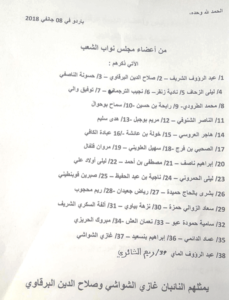 الحمد لله وحده،
باردو في 08 جانفي 2018
من أعضاء مجلس نواب الشعب
الآتي ذكرهم :
1/ عبد الرؤوف الشريف 2/ صلاح الدين البرقاوي 3/ حسونة الناصفي
4/ ليلى الزحاف 5/ نادية زنقر 6/ نجيب الترجماني 7/ توفيق والي
8/ محمد الطرودي 9/ رابحة بن حسين 10/ سماح بوحوال
11/ الناصر الشنوفي 12/ مريم بوجبل 13/ هدى سليم
14/ هاجر العروسي 15/ خولة بن عائشة 16/ عبادة الكافي
17/ الصحبي بن فرج 18/ سهيل العلويني 19/ مروان فلفال
20/ إبراهيم ناصف 21/ مصطفى بن أحمد 22/ ليلى أولاد علي
23/ ليلى الحمروني 24/ ناجية بن عبد الحفيظ 25/ صبرين قوبنطيني
26/ بشرى بالحاج حميدة 27/ رياض جعيدان 28/ ريم محجوب
29/ سعاد الزوالي حمزة 30/ نزهة بياوي 31/ ألفة السكري الشريف
32/ سامية حمودة عبو 33/ نعمان العش 34/ مبروك الحريزي
35/ عماد الدائمي 36/ إبراهيم بنسعيد 37/ غازي الشواشي
38/ عبد الرؤوف الماي
يمثلهم النائبان غازي الشواشي وصلاح الدين البرقاوي